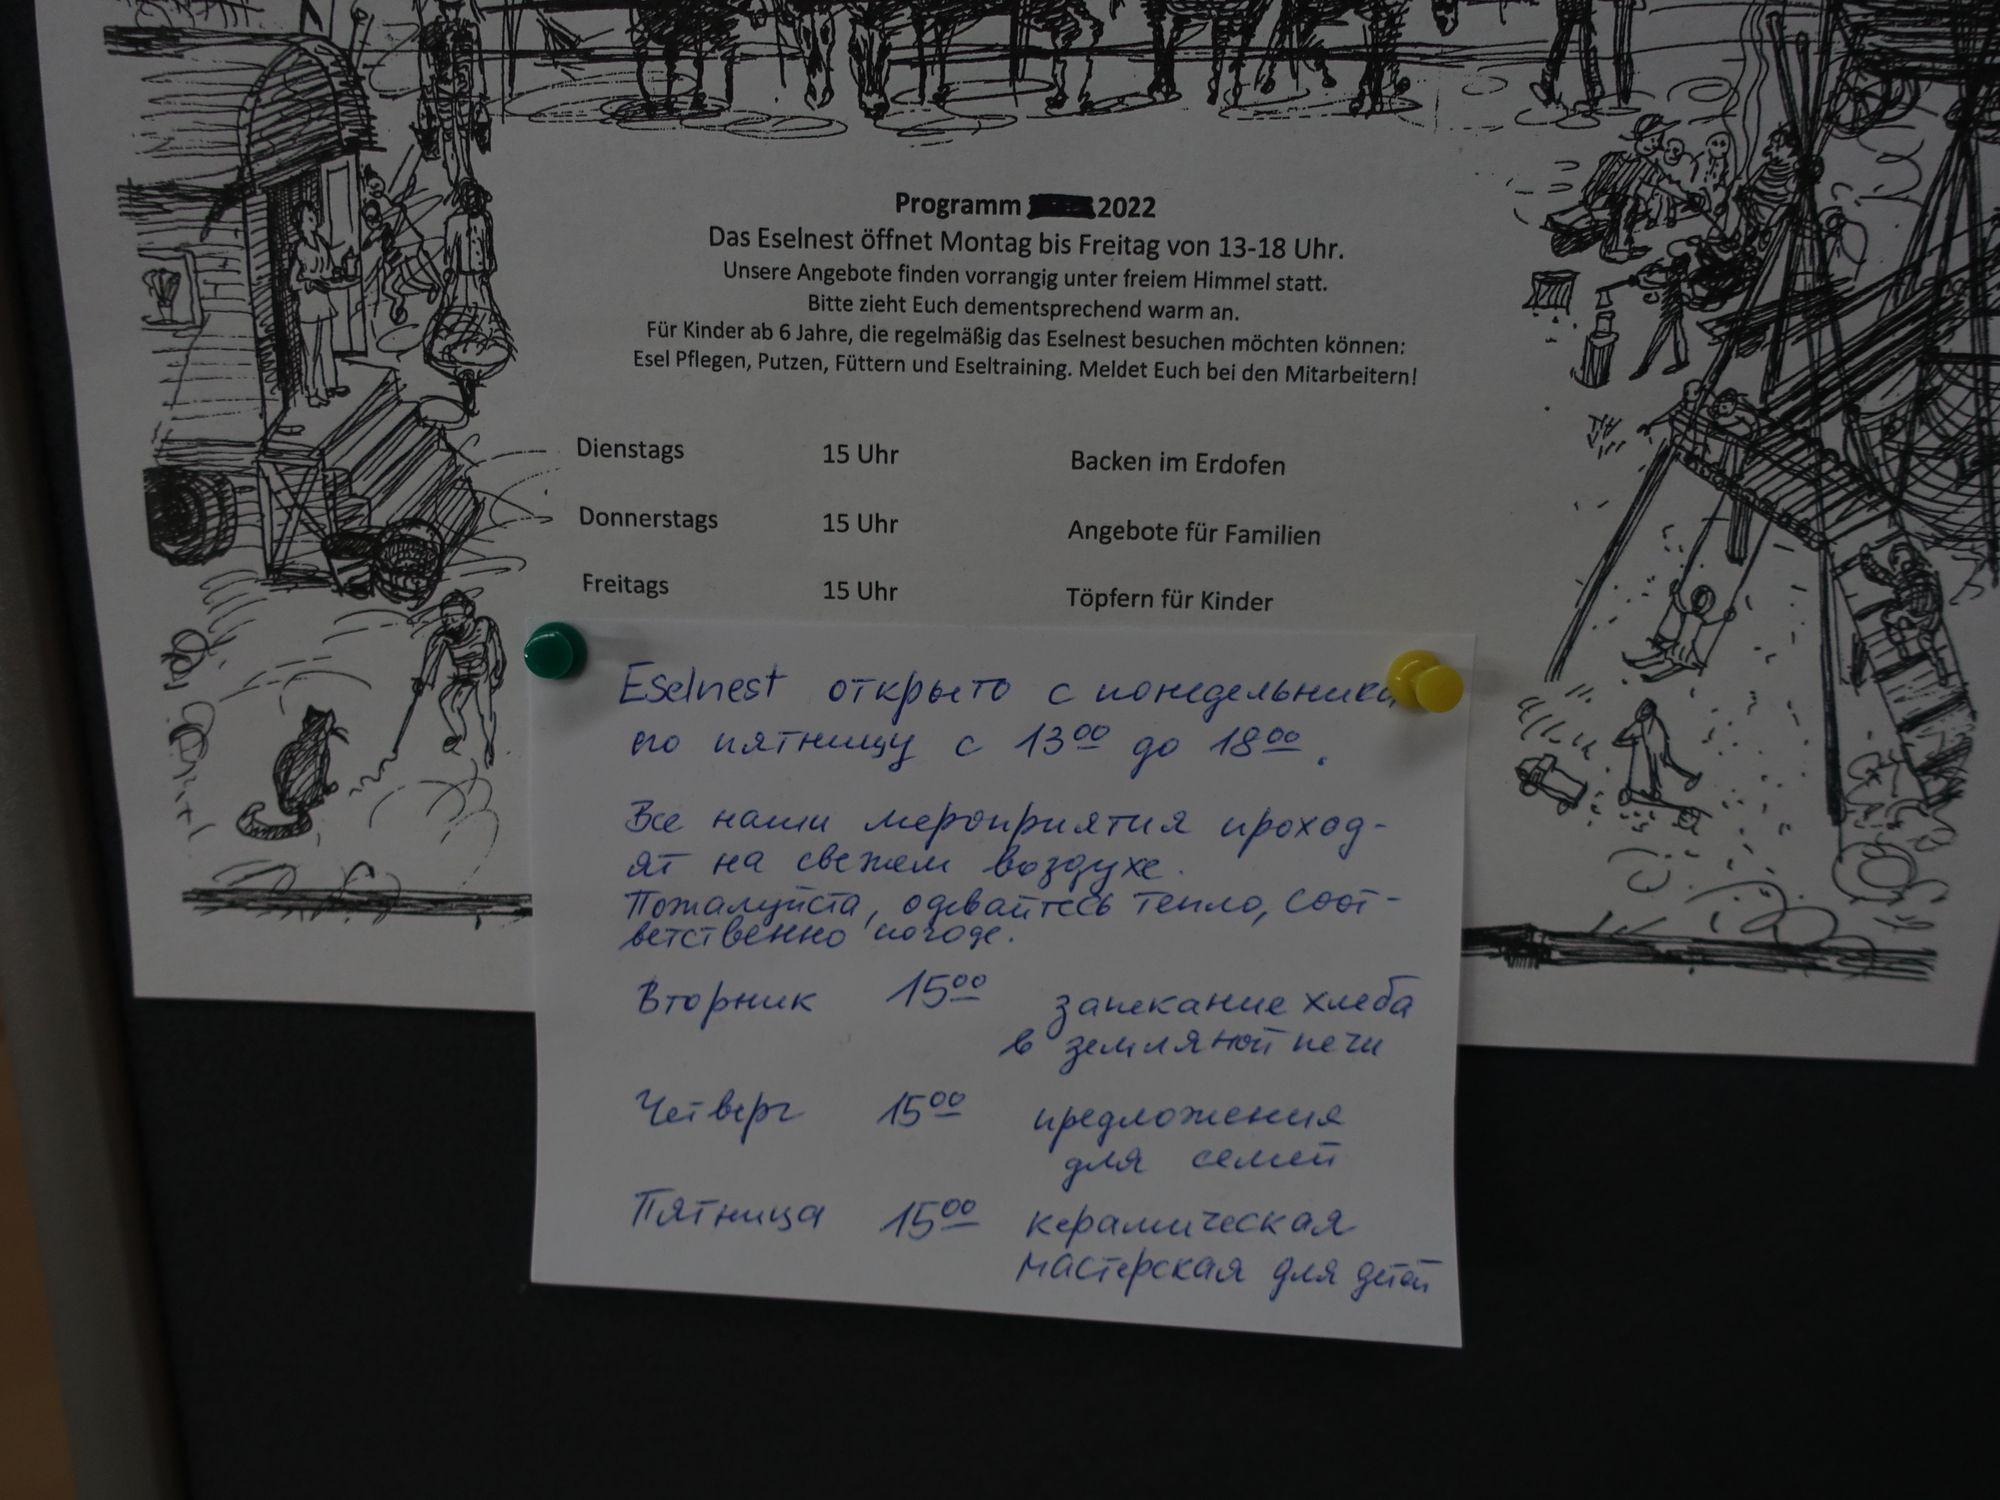 Programm 2022
Das Eselnest öffnet Montag bis Freitag von 13-18 Uhr.
Unsere Angebote finden vorrangig unter freiem Himmel statt.
Bitte zieht Euch dementsprechend warm an.
Für Kinder ab 6 Jahre, die regelmäßig das Eselnest besuchen möchten können:
Esel Pflegen, Putzen, Füttern und Eseltraining. Meldet Euch bei den Mitarbeitern!
Dienstags 15 Uhr Backen im Erdofen
Donnerstags 15 Uhr Angebote für Familien
Freitags 15 Uhr Töpfern für Kinder
Eselnest открыто с понедельника
по пятницу с 13⁰⁰ до 18⁰⁰.
Все наши мероприятия проход-
ят на свежем воздухе.
Пожалуйста, одевайтесь тепло, соот-
ветственно погоде.
Вторник 15⁰⁰ запекание хлеба
в земляной печи
Четверг 15⁰⁰ предложения
для семей
Пятница 15⁰⁰ керамическая
мастерская для детей